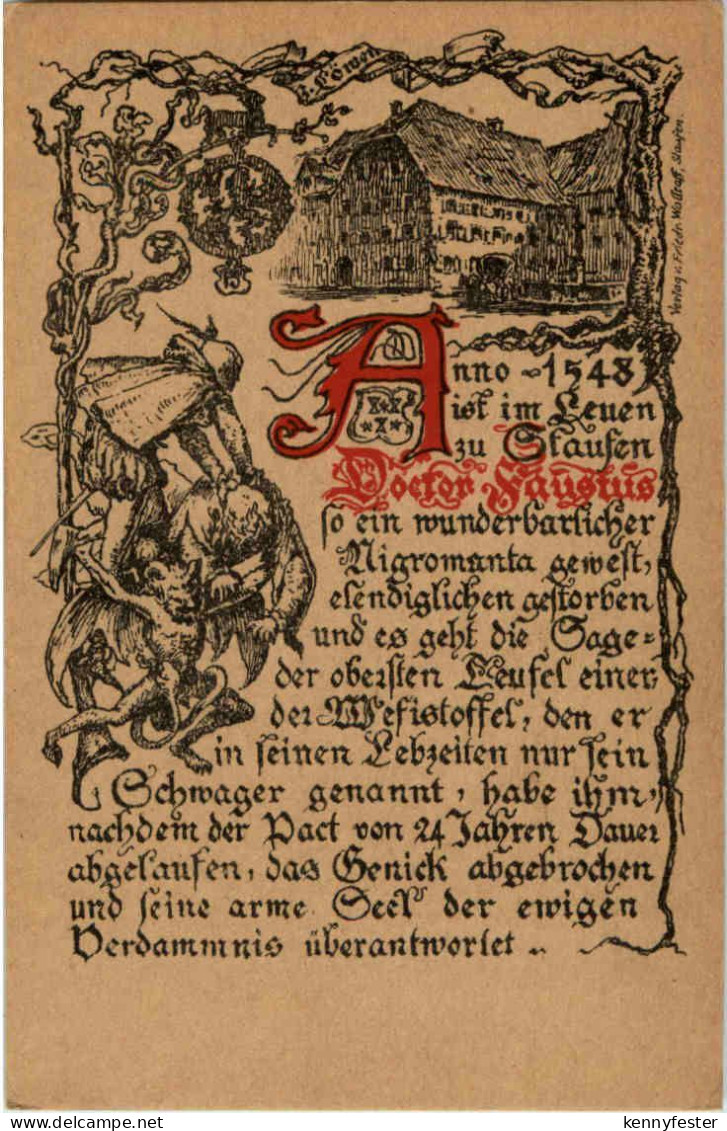 z. Löwen
Verlag v. Friedr. Wallraff, Staufen.
Anno 1548
ist im Leuen
zu Staufen
Doctor Faustus
so ein wunderbarlicher
Nigromanta gewest,
elendiglichen gestorben
und es geht die Sage
der obersten Teufel einer,
der Mefistoffel, den er
in seinen Lebzeiten nur sein
Schwager genannt, habe ihm,
nachdem der Pact von 24 Jahren Dauer
abgelaufen, das Genick abgebrochen
und seine arme Seel der ewigen
Verdammnis überantwortet ..
kennyfester